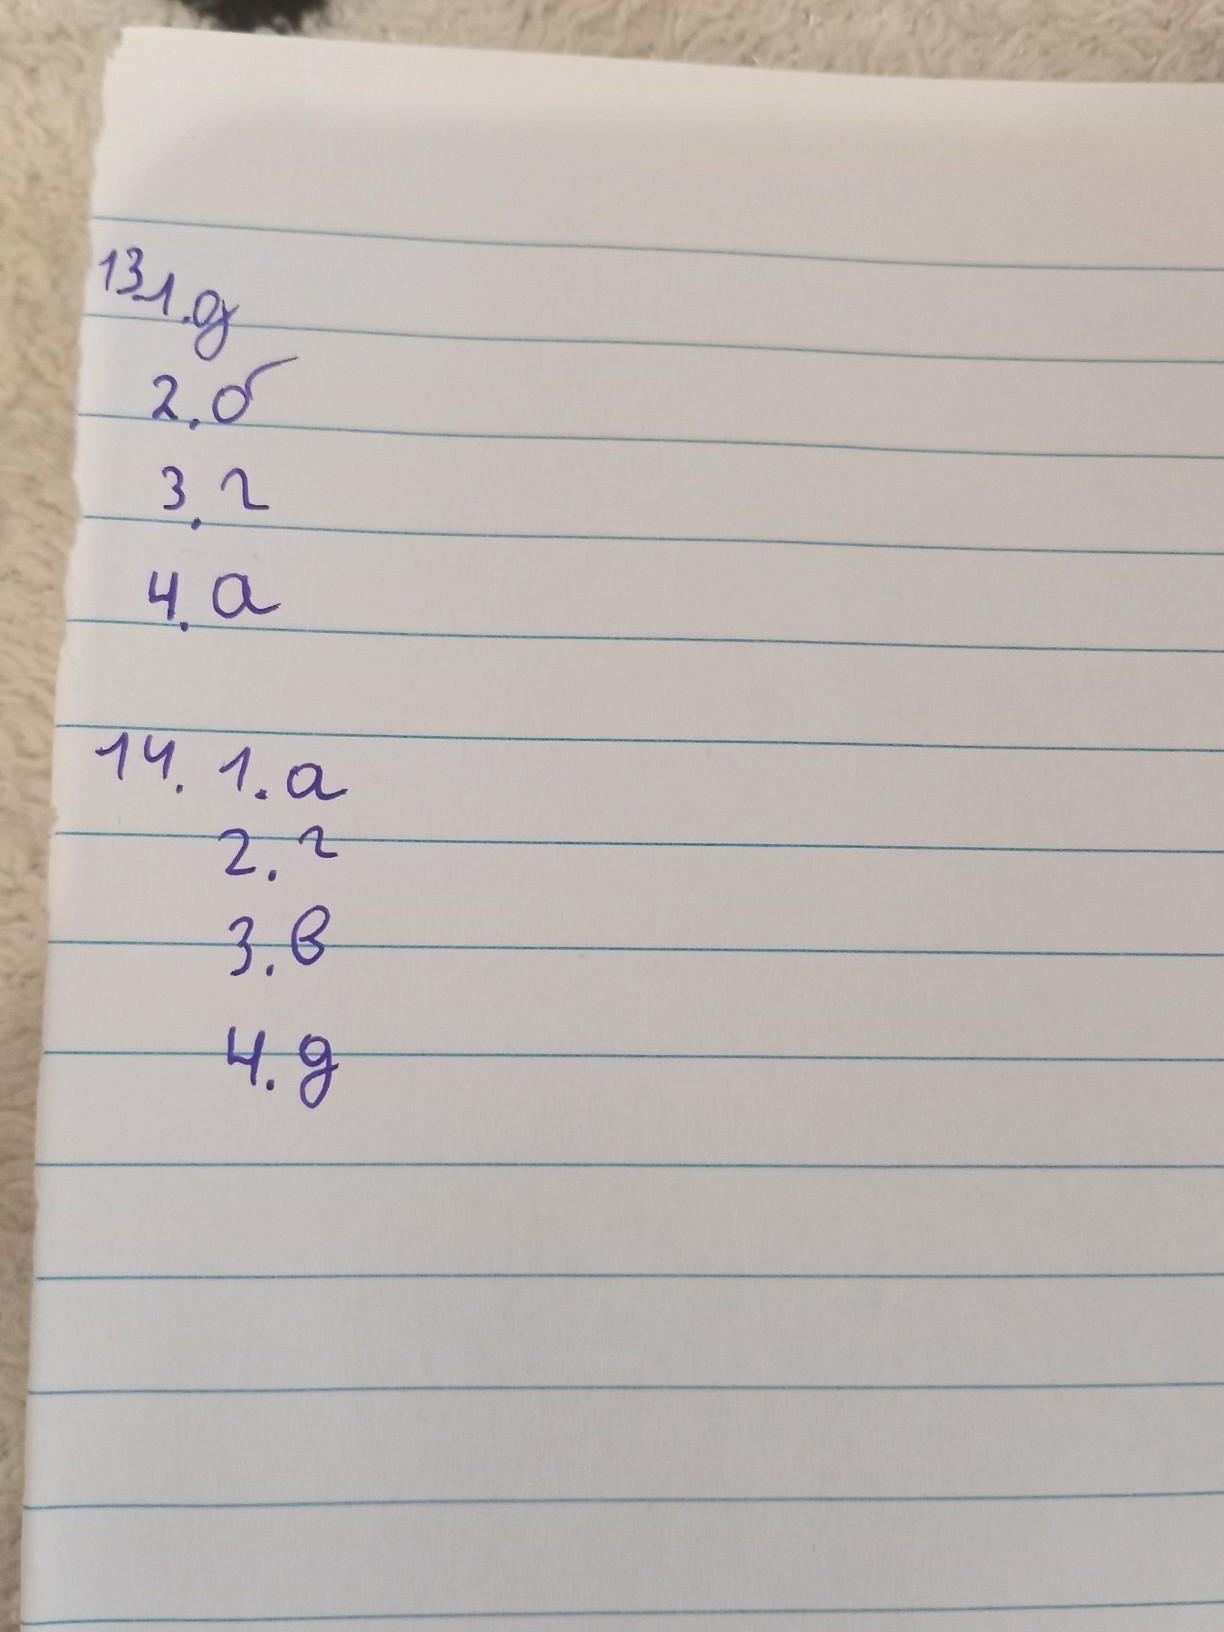 13.1.д
2.б
3.г
4.а
14. 1.а
2.г
3.в
4.д